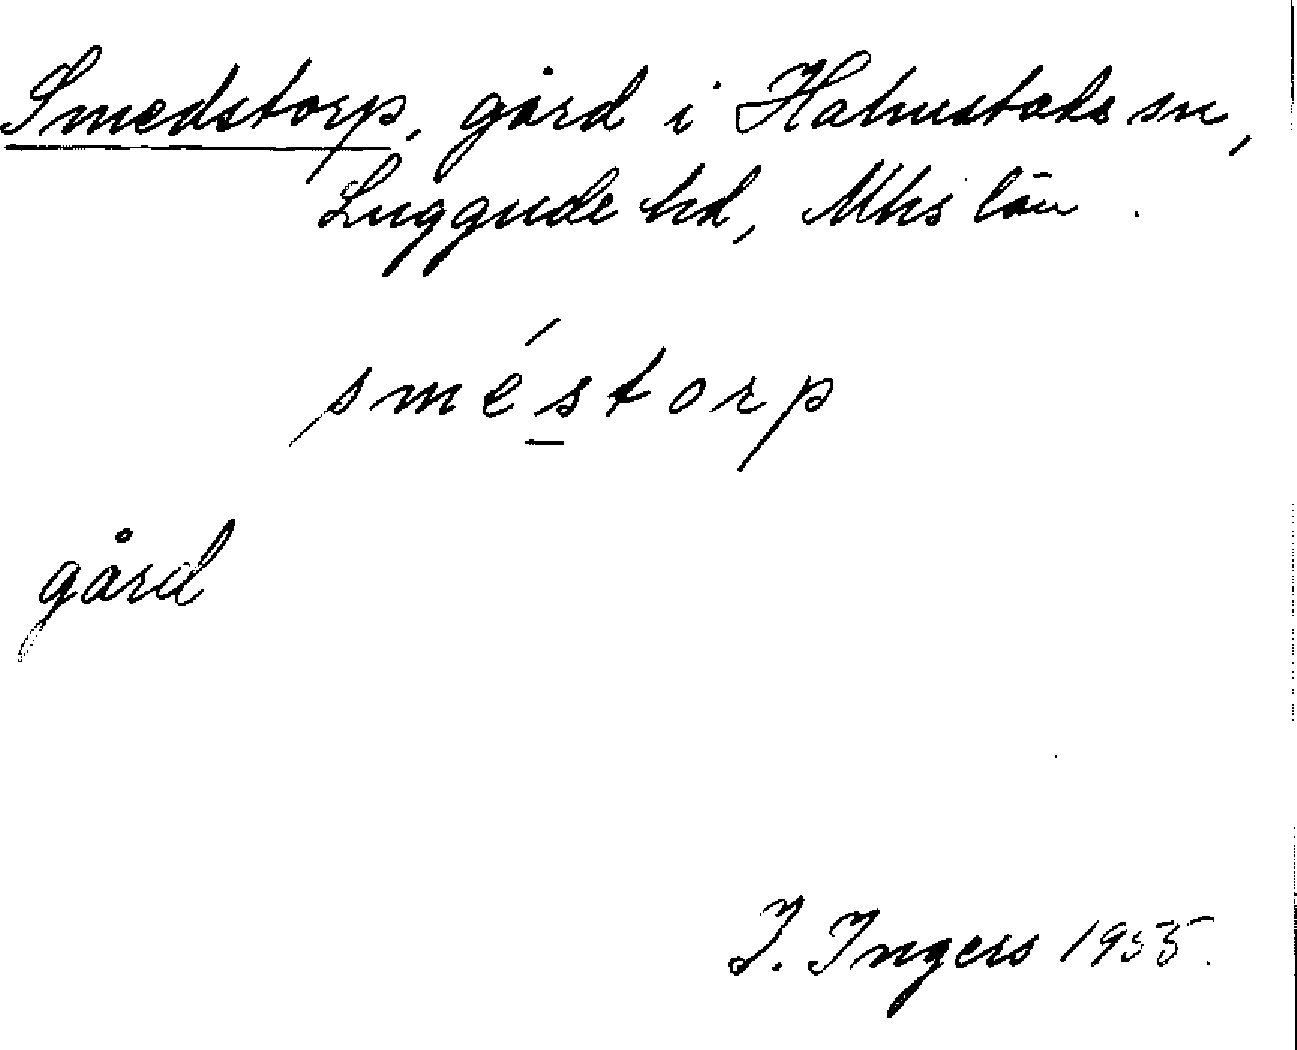 Smedstorp, gård i Halmstads sn,
Luggude hd, Mhs län.
sméstorp
gård
I. Ingers 1955.